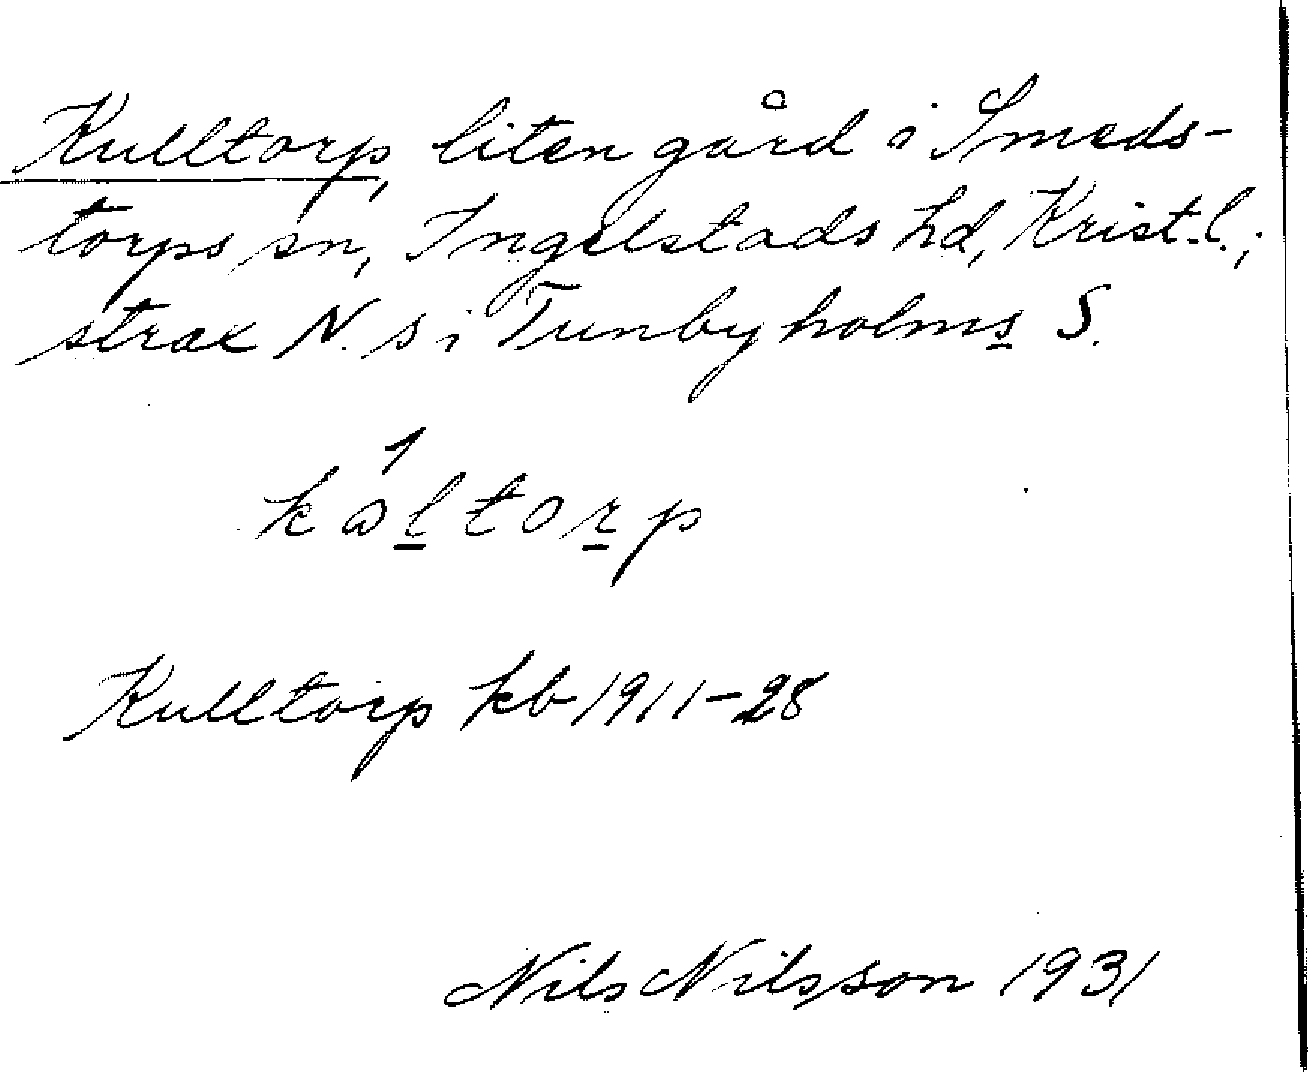 Kulltorp, liten gård i Smeds-
torps sn, Ingelstads hd, Krist.l.;
strax N. s i Tunbyholms S.
kåltorp
Kulltorp kb 1911-28
Nils Nilsson 1931